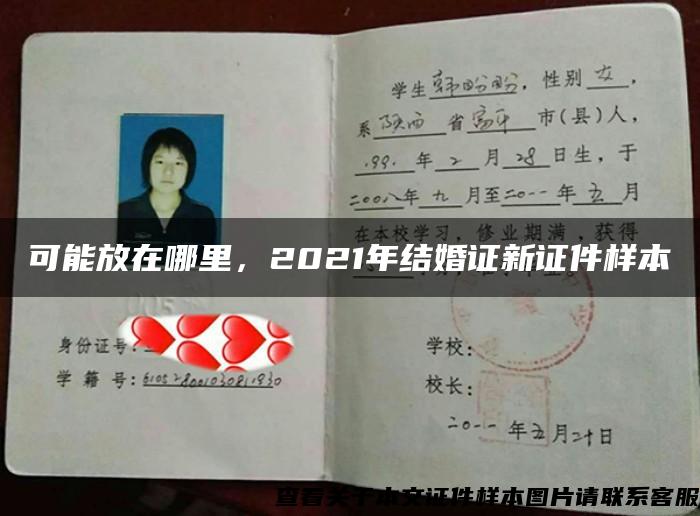 学生韩盼盼，性别女，
系陕西省富平市(县)人，
1991年2月28日生，于
二〇〇八年九月至二〇一一年五月
在本校学习，修业期满，获得
可能放在哪里，2021年结婚证新证件样本
身份证号：
学籍号：610528001030811930
学校：
校长：
二〇一一年五月二十日
查看关于本文证件样本图片请联系客服